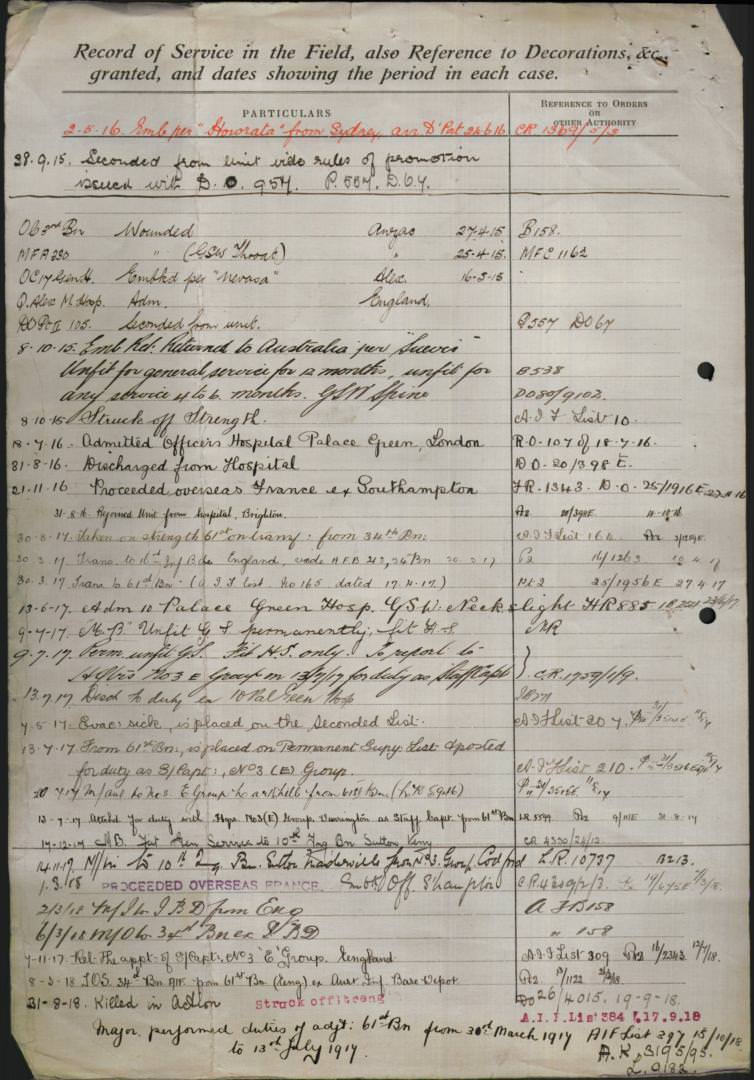 Record of Service in the Field, also Reference to Decorations, &c.,
granted, and dates showing the period in each case.
PARTICULARS
REFERENCE TO ORDERS
OR
OTHER AUTHORITY
2-5-16. Emb per "Honorata" from Sydney, arr D'Port 24616 CR 1369/5/3
28.9.15. Seconded from unit vide rules of promotion
issued with D.O. 957. P.557. D.67.
OC 3rd Bn Wounded Anzac 27.4.15 B158.
MFA 230 " (GSW Throat) " 25-4-15. MFC 1162
OC 17 Genl H. Embkd per "Nevasa" Alex. 16-5-15
Q. Alex M Hosp. Adm. England.
DO Pt II 105. Seconded from unit. P557 DO 67
8-10-15. Emb Rel. Returned to Australia per "Suevic"
Unfit for general service for 12 months, unfit for B538
any service 4 to 6 months. GSW Spine DO 80/9102.
8-10-15 Struck off Strength. A.I.F List 10.
18-7-16. Admitted Officers Hospital Palace Green, London R.O-107 of 18-7-16.
31-8-16. Discharged from Hospital D O-20/398 E.
21.11.16 Proceeded overseas France ex Southampton FR.1343. D.O. 25/1916E 22 11 16
31-8-16 Rejoined Unit from hospital, Brighton. Pt2 20/398E.
30-3-17. Taken on strength 61st on transf: from 34th Bn: A.I.F List 164. Pt2
30.3.17. Trans. to 16th Inf Bde England, vide AFB 213, 34 Bn 30.3.17 P2 16/1263
30.3.17 Trans to 61st Bn (A I F List No 165 dated 17.4.17.) Pt 2 25/1956 E 27 4 17
13-6-17. Adm 10 Palace Green Hosp. GSW. Neck slight HR885
9-7-17. M.B. Unfit G S permanently, fit H.S. MR
9.7.17. Perm. unfit G.S. Fit H.S. only. To report to
HQrs No 3 E Group on 13/7/17 for duty as Staff Capt } C.R. 1759/1/9.
13.7.17 Disch to duty ex 10 Pal Green Hosp
7.5.17. Evac: sick, is placed on the Seconded List. A.I.F List 207.
13-7-17. From 61st Bn:, is placed on Permanent Supy. List & posted
for duty as S/Capt:, No 3 (E) Group. A.I.F List 210.
M/out to No 3. E Group from 61st Bn
13-7-17. Attchd for duty with Hqrs No3(E) Group. Durrington as Staff Capt. from 61st Bn L.R 5599. 9/111E 31-8-17
17-12-17 M.B. Fit Gen Service to 10th Trng Bn Sutton Veny CR 4330/24/12.
14.11.17. M/in to 10th Trg. Bn. Sutton from No 3. Group Codford L.R. 10737 B213.
1.3.18 PROCEEDED OVERSEAS FRANCE. Embk Off. S'hampton CR 4389/2/3.
2/3/18 M/I to I B D from Eng A F B158
6/3/18 M/O to 34th Bn ex I B D " 158
7-11-17. Rel. the appt. of S/Capt, No 3 "E" Group. England A.I.F List 309 Pt2 16/2343 12/7/18.
8-3-18 T.O.S. 34th Bn from 61st Bn (Eng) ex Aust Inf Base Depot Pt2 13/1122
31-8-18. Killed in Action Struck off streng DO 26/4015. 19-9-18.
A.I.F List 384 d/17.9.18
Major, performed duties of adjt: 61st Bn from 30th March 1917 AIF List 397 15/10/18
to 13th July 1917. A.K. 3195/95.
L.0182.